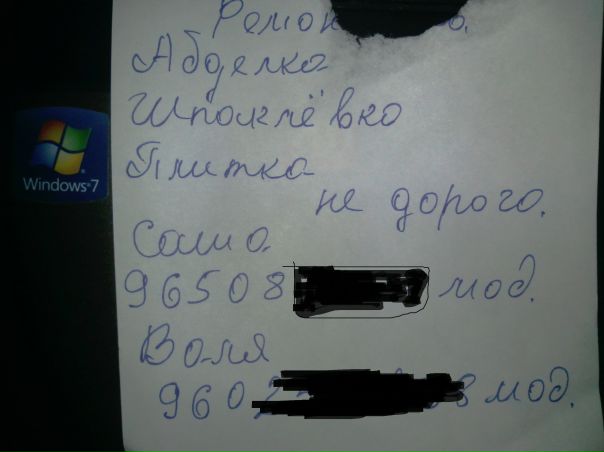 Ремон
Абделка
Шпоклёвко
Плитка
не дорого.
Саша
96508 мод.
Валя
960 8 мод.
Windows 7